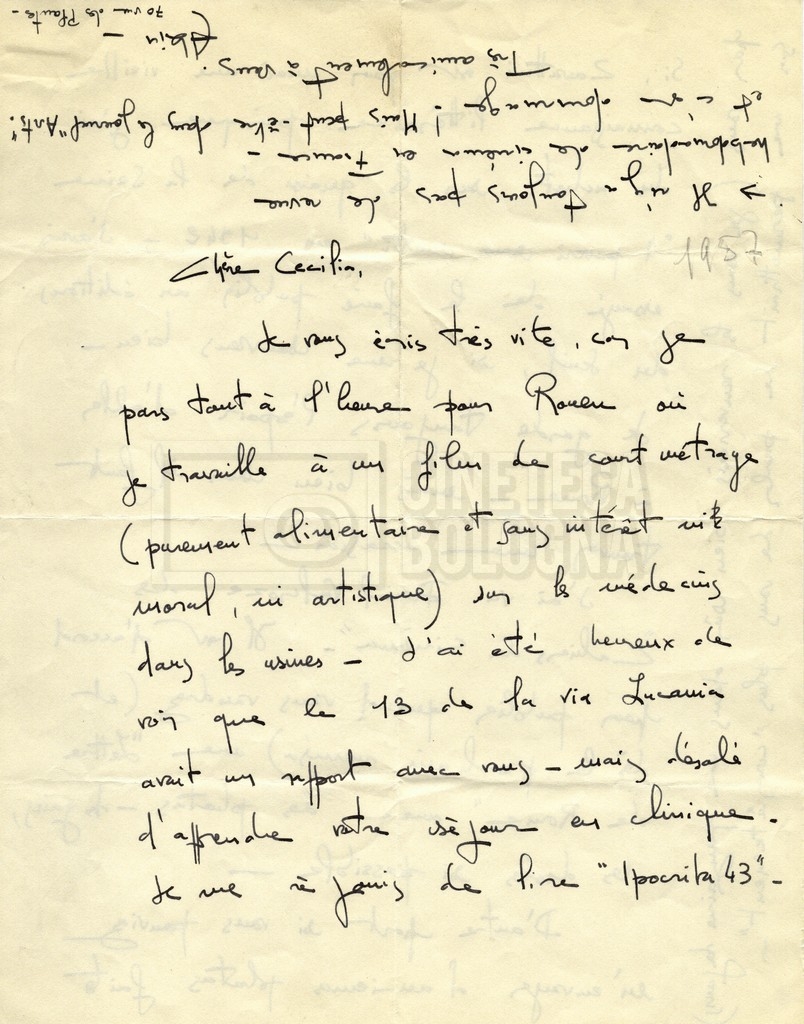 1957
Chère Cecilia,
Je vous écris très vite, car je
pars tout à l'heure pour Rouen où
je travaille à un film de court métrage
(purement alimentaire et sans intérêt ni
moral, ni artistique) sur les médecins
dans les usines - J'ai été heureux de
voir que le 13 de la via Lucania
avait un rapport avec vous - mais désolé
d'apprendre votre séjour en clinique.
Je me réjouis de lire "Ipocrita 43" -
→ Il n'y a toujours pas de revue
hebdomadaire de cinéma en France -
et c'est dommage! Mais peut-être dans le journal "Arts".
Très amicalement à vous.
Alain -
70 rue des Plantes -
CINETECA
BOLOGNA